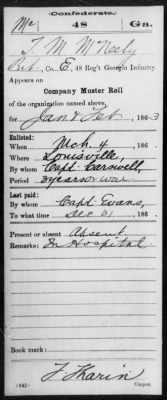 (Confederate.)
Mc 48 Ga.
T. M. McNeely
Pvt, Co. E, 48 Reg't Georgia Infantry
Appears on
Company Muster Roll
of the organization named above,
for Jan & Feb, 186 3
Enlisted:
When Mch. 4, 186
Where Louisville,
By whom Capt. Carswell,
Period 3 years or war
Last paid:
By whom Capt. Evans,
To what time Dec 31, 186
Present or absent Absent
Remarks: In Hospital.
Book mark:
(642)
Copyist.